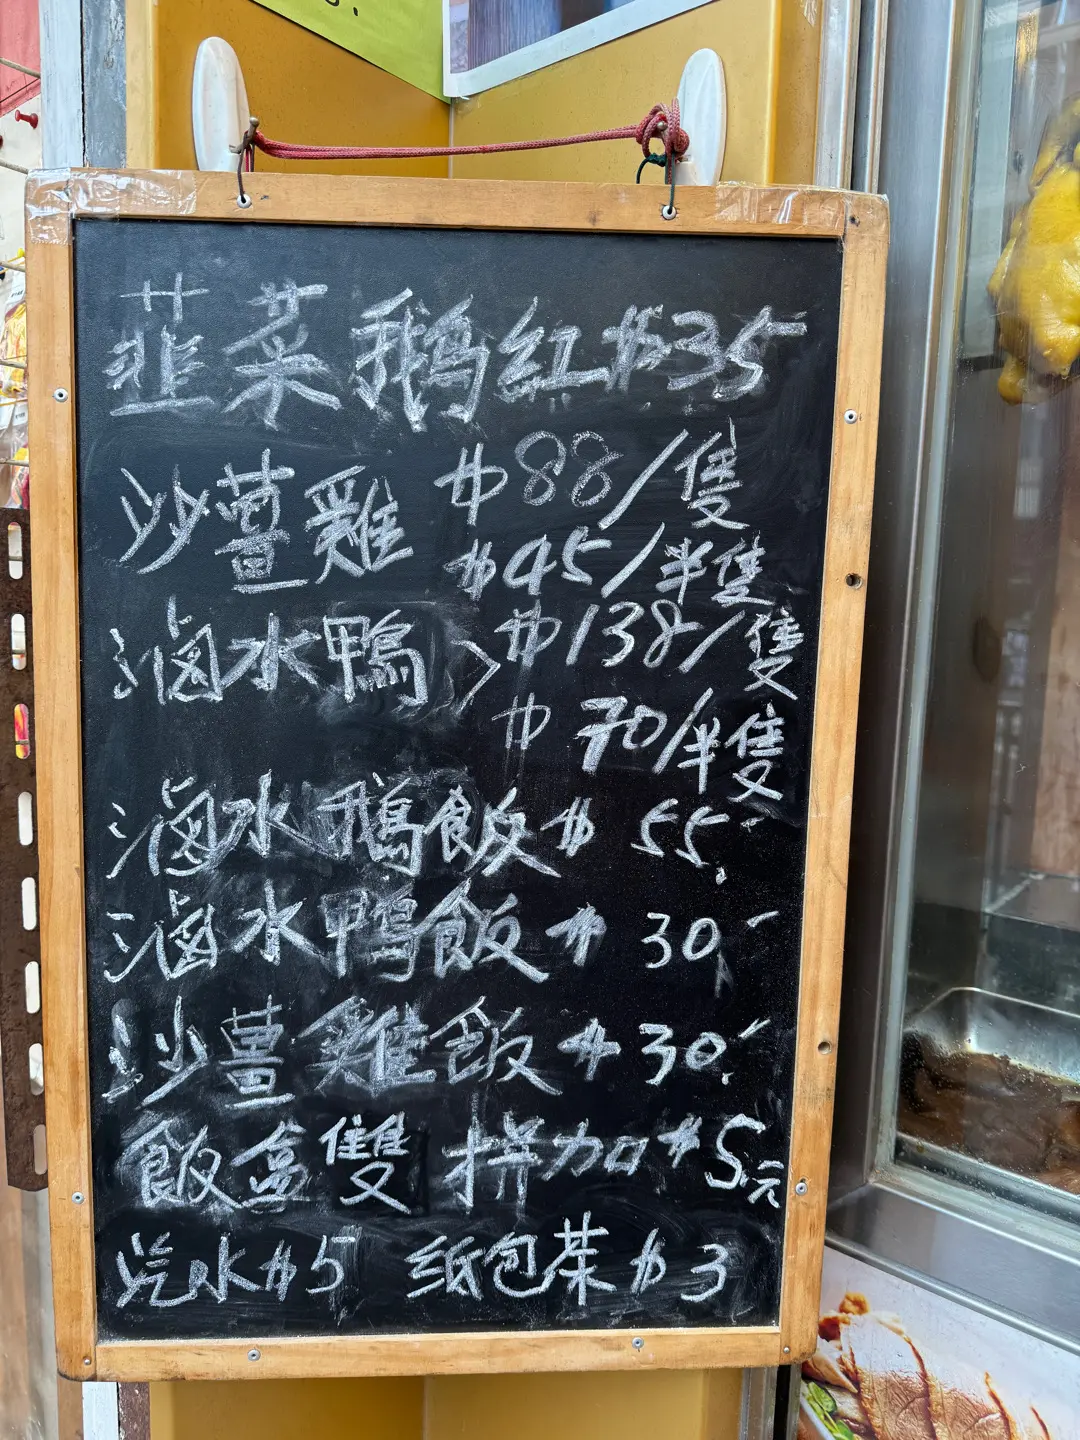 韮菜鵝紅$35
沙薑雞 $88/隻
$45/半隻
滷水鴨> $138/隻
$70/半隻
滷水鵝飯$ 55.-
滷水鴨飯$ 30.-
沙薑雞飯$30.-
飯盒雙拼加$5元
汽水$5 紙包茶$3